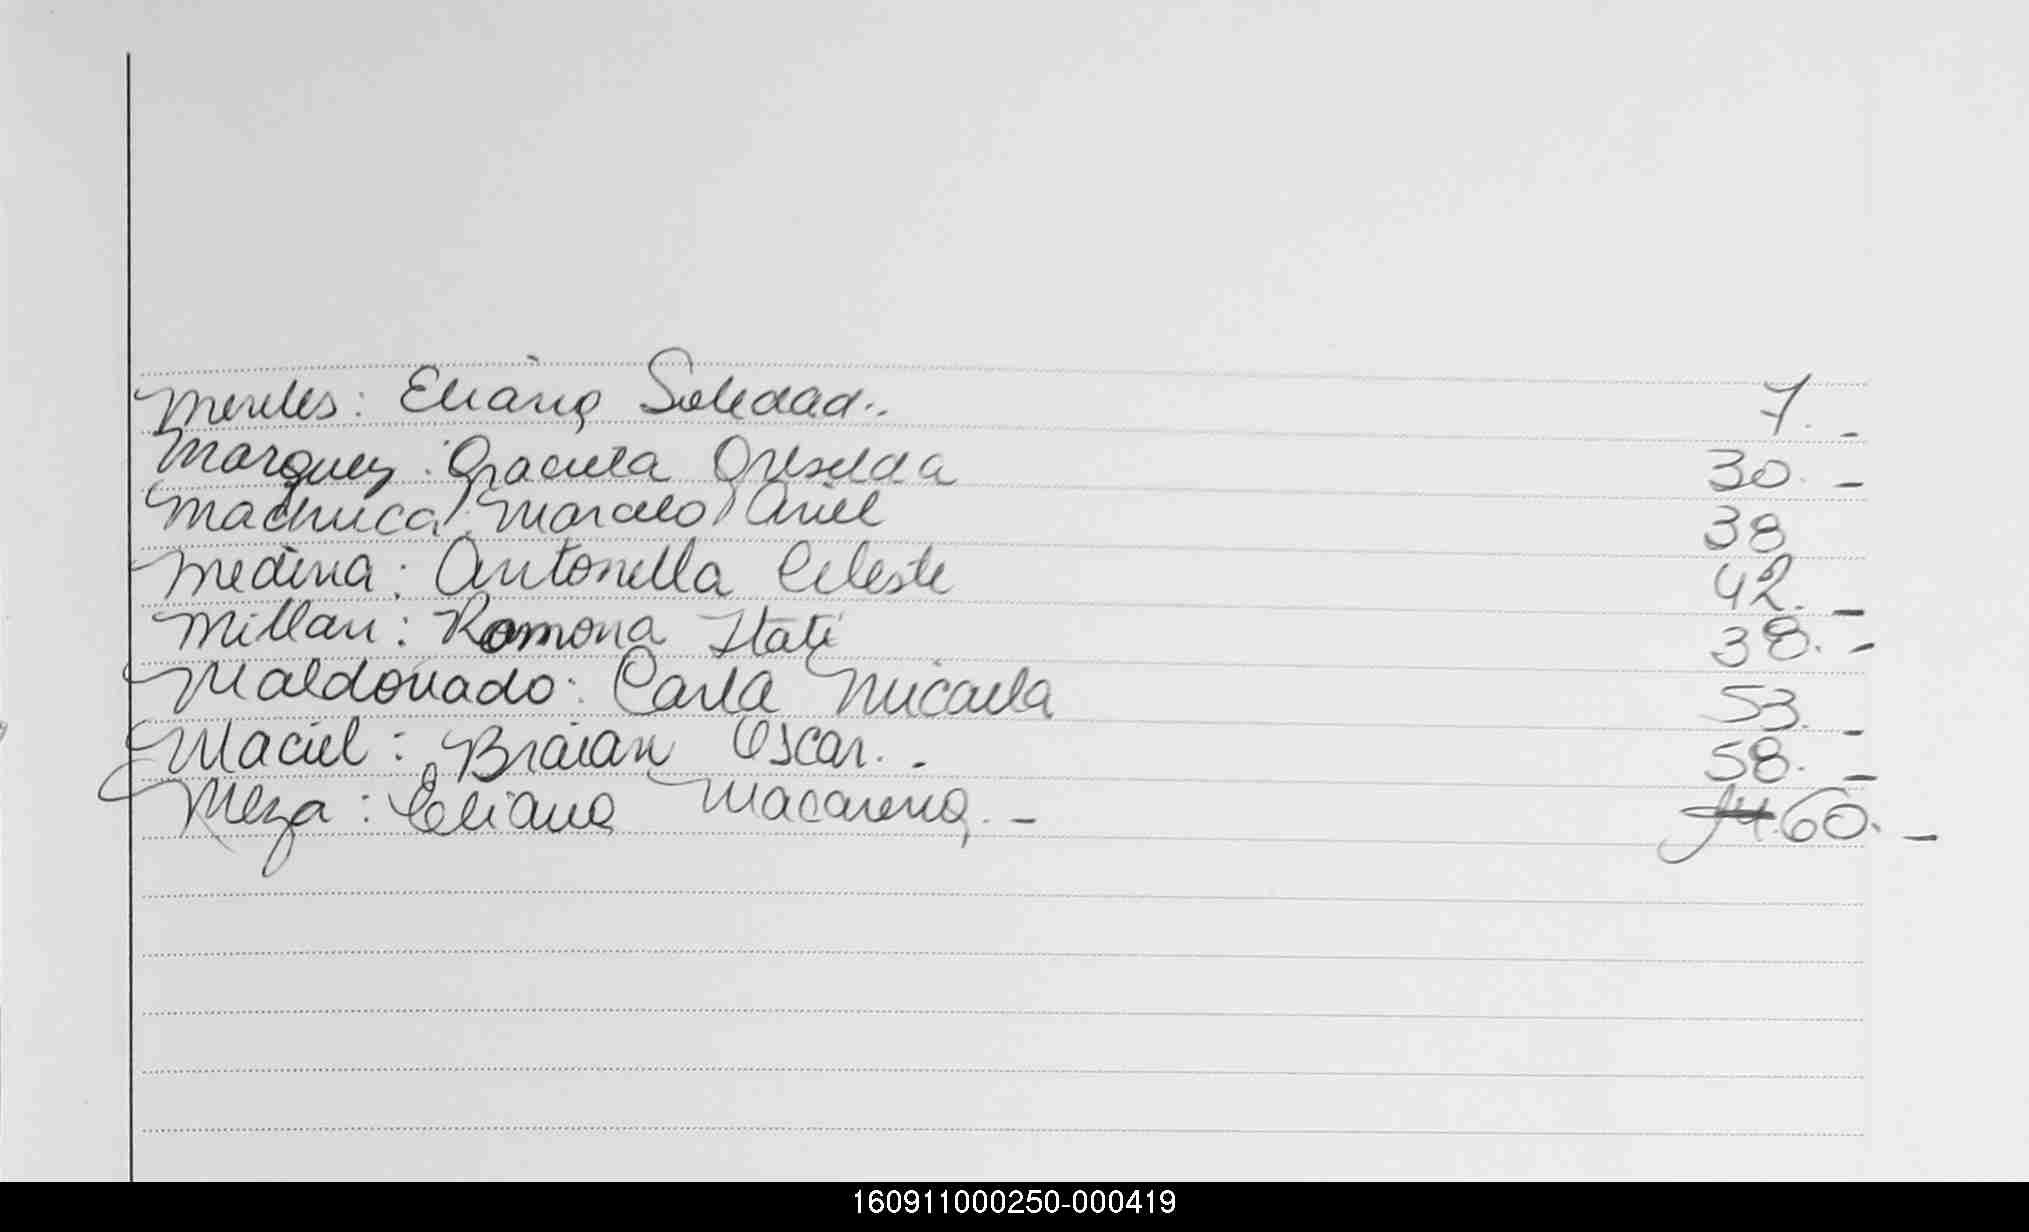 Mereles: Eliana Soledad..
7. -
Marquez: Graciela Griselda
30. -
Machuca: Marcelo Ariel
38
Medina: Antonella Celeste
42. -
Millan: Ramona Itati
38. -
Maldonado: Carla Micaela
53. -
Maciel: Braian Oscar. -
58. -
Meza: Eliana Macarena. -
60. -
160911000250-000419